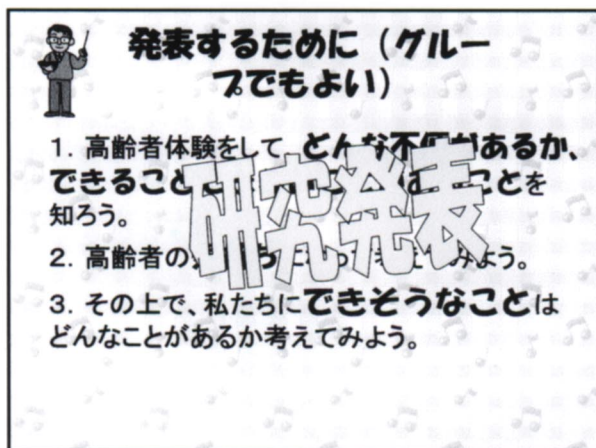 発表するために（グルー
プでもよい）
1．高齢者体験をして、どんな不便があるか、
できること ことを
知ろう。
研究発表
2．高齢者の みよう。
3．その上で、私たちにできそうなことは
どんなことがあるか考えてみよう。